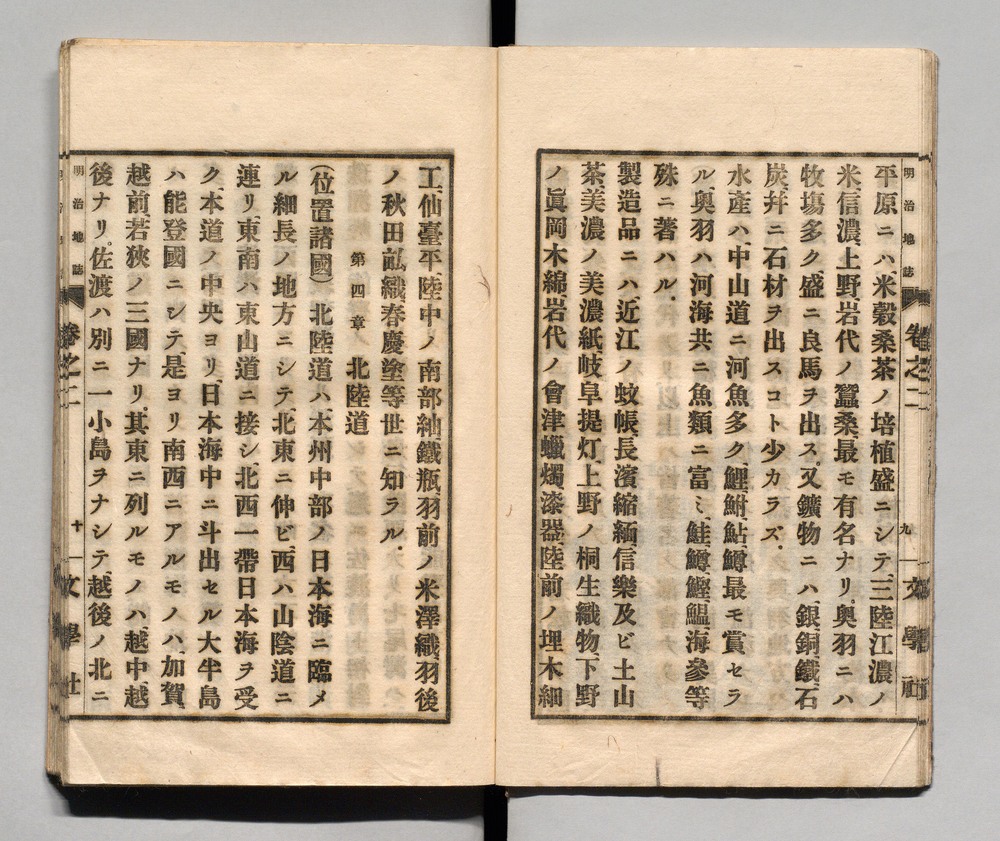 明治地誌 卷之二 九 文學社
平原ニハ、米穀桑茶ノ培植盛ニシテ、三陸江濃ノ
米、信濃上野岩代ノ蠶桑、最モ有名ナリ、奧羽ニハ
牧塲多ク、盛ニ良馬ヲ出ス、又鑛物ニハ、銀銅鐵石
炭、幷ニ石材ヲ出スコト少カラズ.
水產ハ、中山道ニ河魚多ク、鯉鮒鮎鱒最モ賞セラ
ル、奧羽ハ河海共ニ魚類ニ富ミ、鮭鱒鰹鰮海參等
殊ニ著ハル.
製造品ニハ近江ノ蚊帳、長濱縮緬、信樂及ビ土山
茶、美濃ノ美濃紙、岐阜提灯、上野ノ桐生織物、下野
ノ眞岡木綿、岩代ノ會津蠟燭、漆器、陸前ノ埋木細
工、仙臺平、陸中ノ南部紬、鐵瓶、羽前ノ米澤織、羽後
ノ秋田畝織、春慶塗等世ニ知ラル.
第四章 北陸道
(位置諸國) 北陸道ハ、本州中部ノ日本海ニ臨メ
ル細長ノ地方ニシテ、北東ニ伸ビ、西ハ山陰道ニ
連リ、東南ハ東山道ニ接シ、北西一帶日本海ヲ受
ク、本道ノ中央ヨリ、日本海中ニ斗出セル大半島
ハ能登國ニシテ、是ヨリ南西ニアルモノハ、加賀
越前、若狹ノ三國ナリ、其東ニ列ルモノハ越中、越
後ナリ、佐渡ハ別ニ一小島ヲナシテ、越後ノ北ニ
明治地誌 卷之二 十 文學社